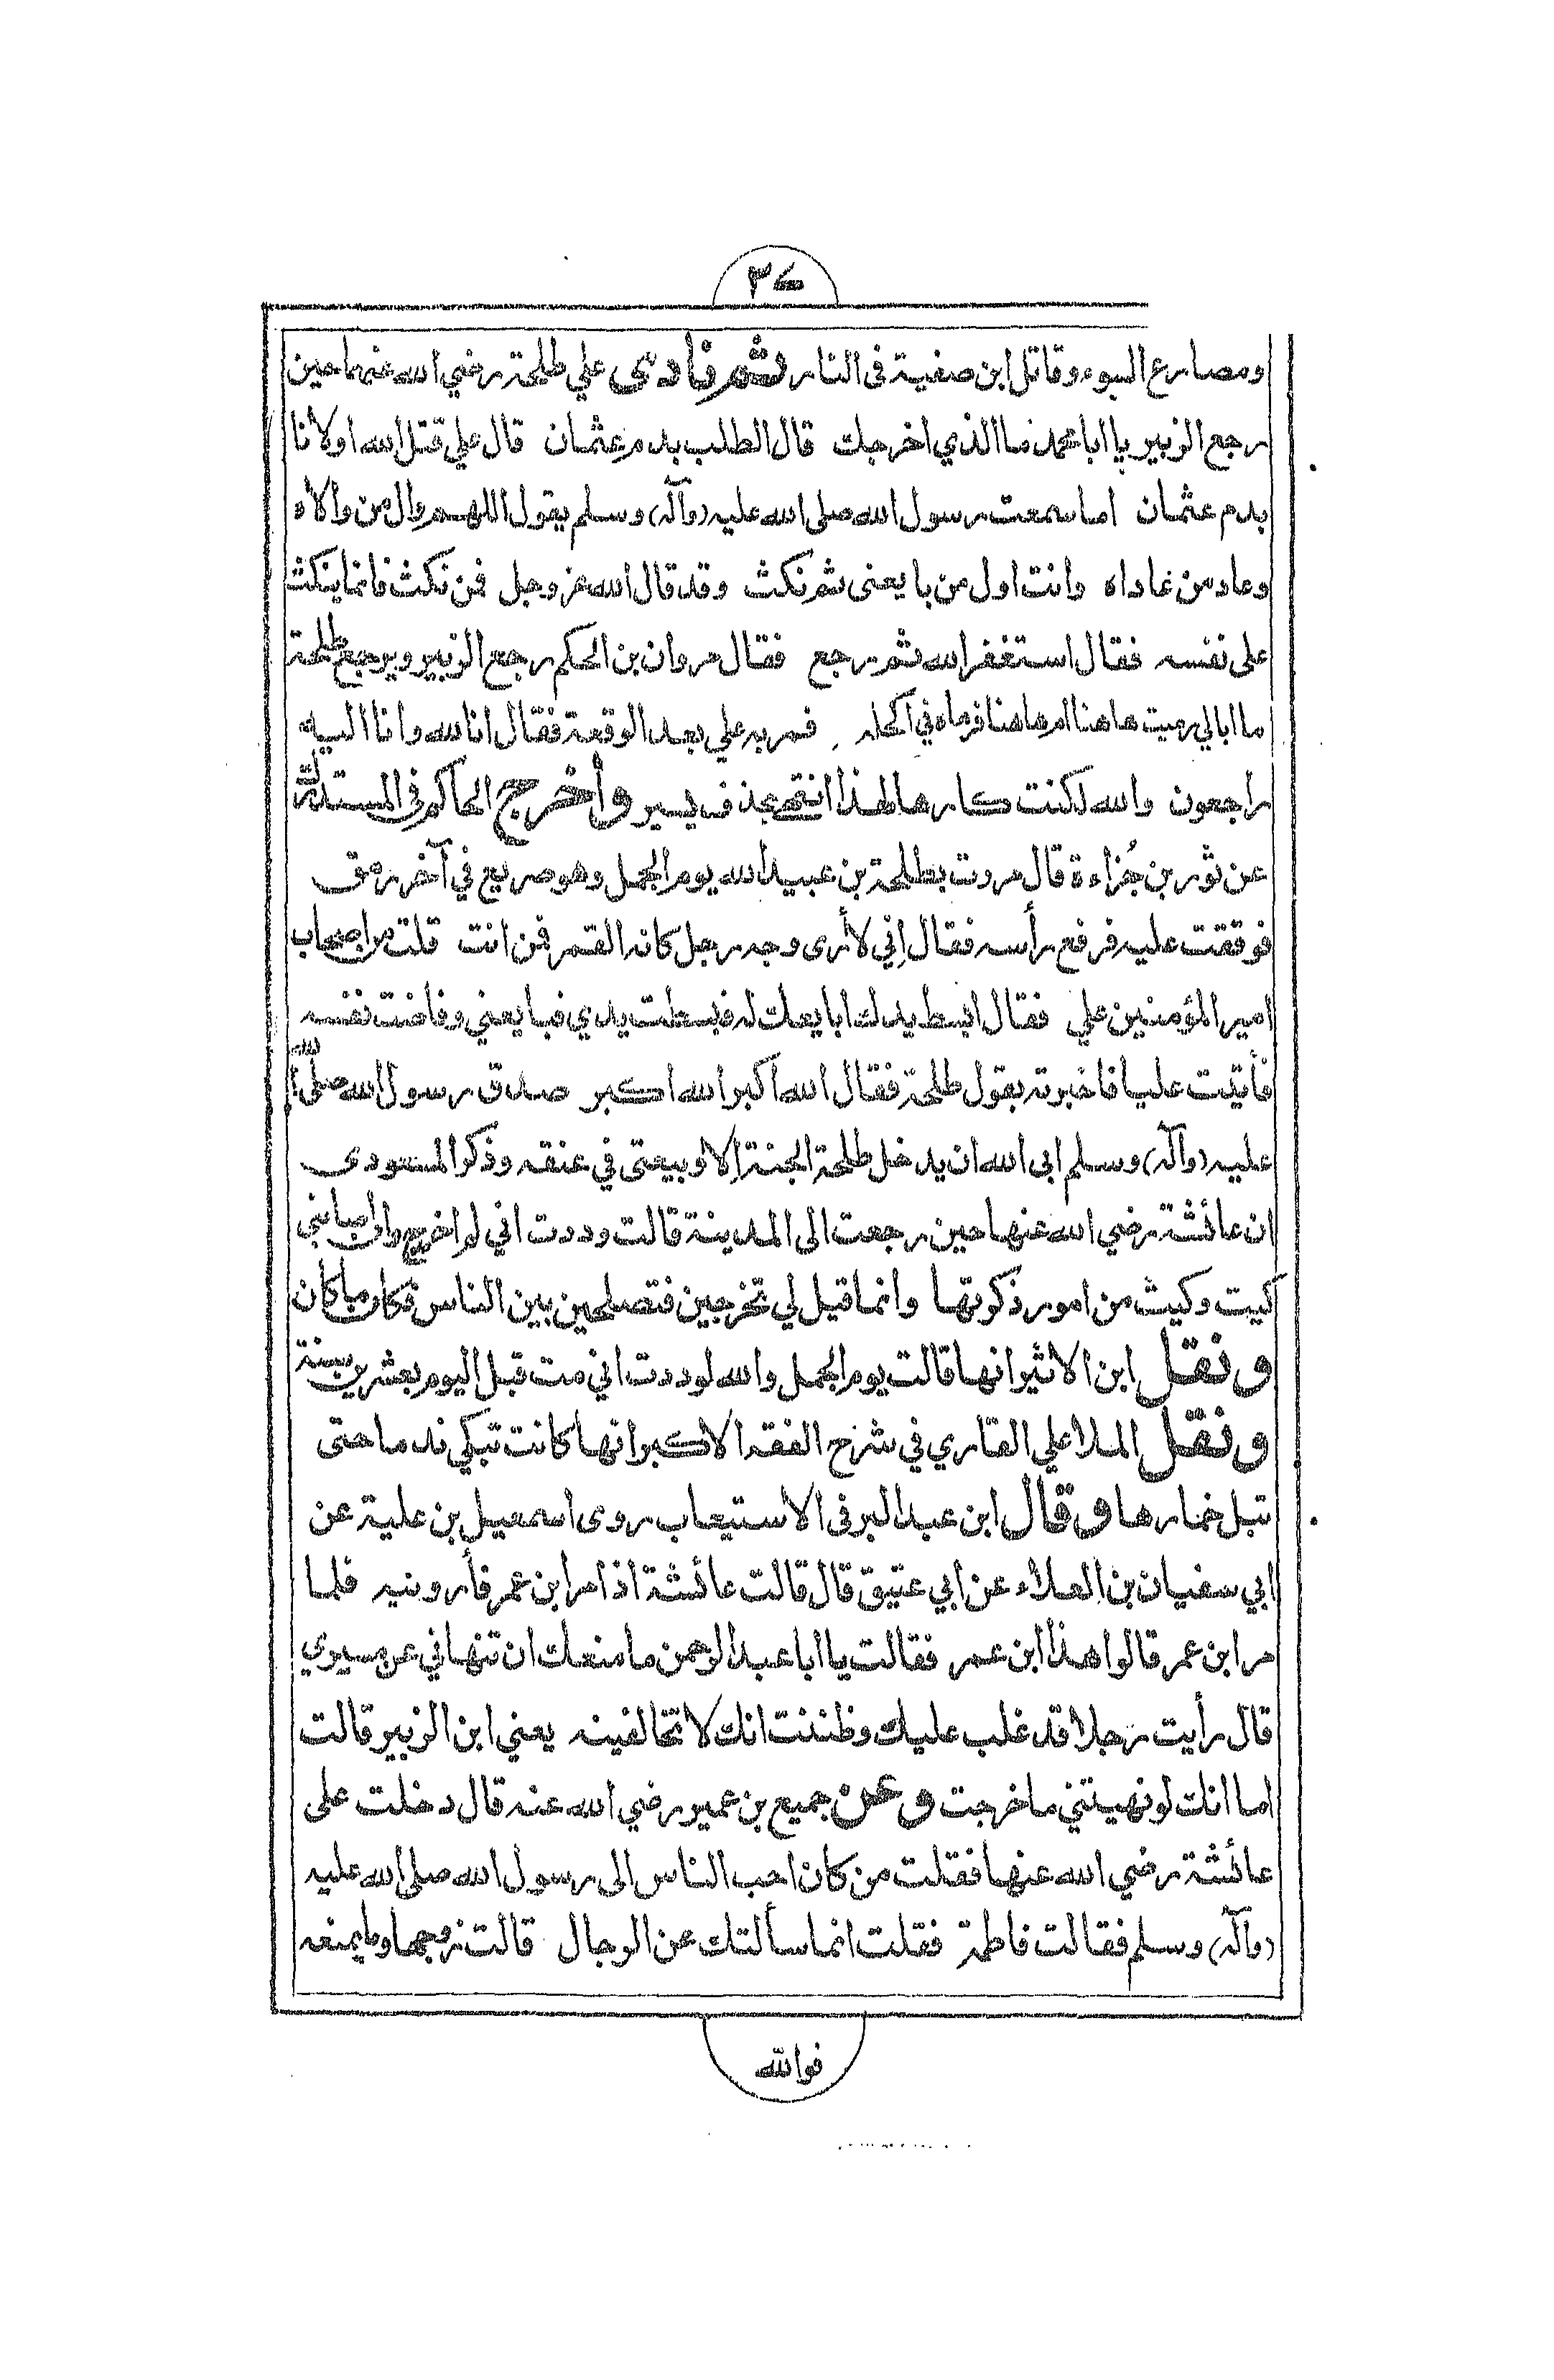 ٣٤
ومصارع السوء وقاتل ابن صفية فى النار ثم نادى علي طلحة رضي الله عنهما حين
رجع الزبير يا ابا محمد ما الذي اخرجك قال الطلب بدم عثمان قال علي قتل الله اولانا
بدم عثمان اما سمعت رسول الله صلى الله عليه (وآله) وسلم يقول اللهم وال من والاه
وعاد من عاداه وانت اول من بايعنى ثم نكث وقد قال الله عز وجل فمن نكث فانما ينكث
على نفسه فقال استغفر الله ثم رجع فقال مروان بن الحكم رجع الزبير ويرجع طلحة
ما ابالي رميت هاهنا ام هاهنا فرماه في اكحله فمر به علي بعد الوقعة فقال انا لله وانا اليه
راجعون والله لكنت كارها لهذا انتهى بحذف يسير وأخرج الحاكم فى المستدرك
عن ثور بن جُزاءة قال مروت بطلحة بن عبيد الله يوم الجمل وهو صريع في آخر رمق
فوقفت عليه فرفع رأسه فقال اِني لأرى وجه رجل كانه القمر فمن انت قلت من اصحاب
امير المؤمنين علي فقال ابسط يدك ابايعك له فبسطت يدي فبايعني وفاضت نفسه
فأتيت عليا فاخبرته بقول طلحة فقال الله اكبر الله اكبر صدق رسول الله صلى الله
عليه (وآله) وسلم ابى الله ان يدخل طلحة الجنة اِلا وبيعتى في عنقه وذكر المسعودى
ان عائشة رضي الله عنها حين رجعت الى المدينة قالت وددت اني لم اخرج وان اصابني
كيت وكيث من امور ذكرتها وانما قيل لي تخرجين فتصلحين بين الناس فكان ما كان
ونقل ابن الاثير انها قالت يوم الجمل والله لوددت اني مت قبل اليوم بعشرين سنة
ونقل الملا علي القاري في شرح الفقه الاكبر انها كانت تبكي ندما حتى
تبل خمارها وقال ابن عبد البر فى الاستيعاب روى اسمعيل بن علية عن
ابي سفيان بن العلاء عن ابي عتيق قال قالت عائشة اذا مر ابن عمر فأرونيه فلما
مر ابن عمر قالوا هذا ابن عمر فقالت يا ابا عبد الرحمن ما منعك ان تنهاني عن مسيري
قال رأيت رجلا قد غلب عليك وظننت انك لا تخالفينه يعني ابن الزبير قالت
اما انك لو نهيتني ما خرجت وعن جميع بن عمير رضي الله عنه قال دخلت على
عائشة رضي الله عنها فقلت من كان احب الناس الى رسول الله صلى الله عليه
(وآله) وسلم فقالت فاطمة فقلت انما سألتك عن الرجال قالت زوجها وما يمنعه
فوالله